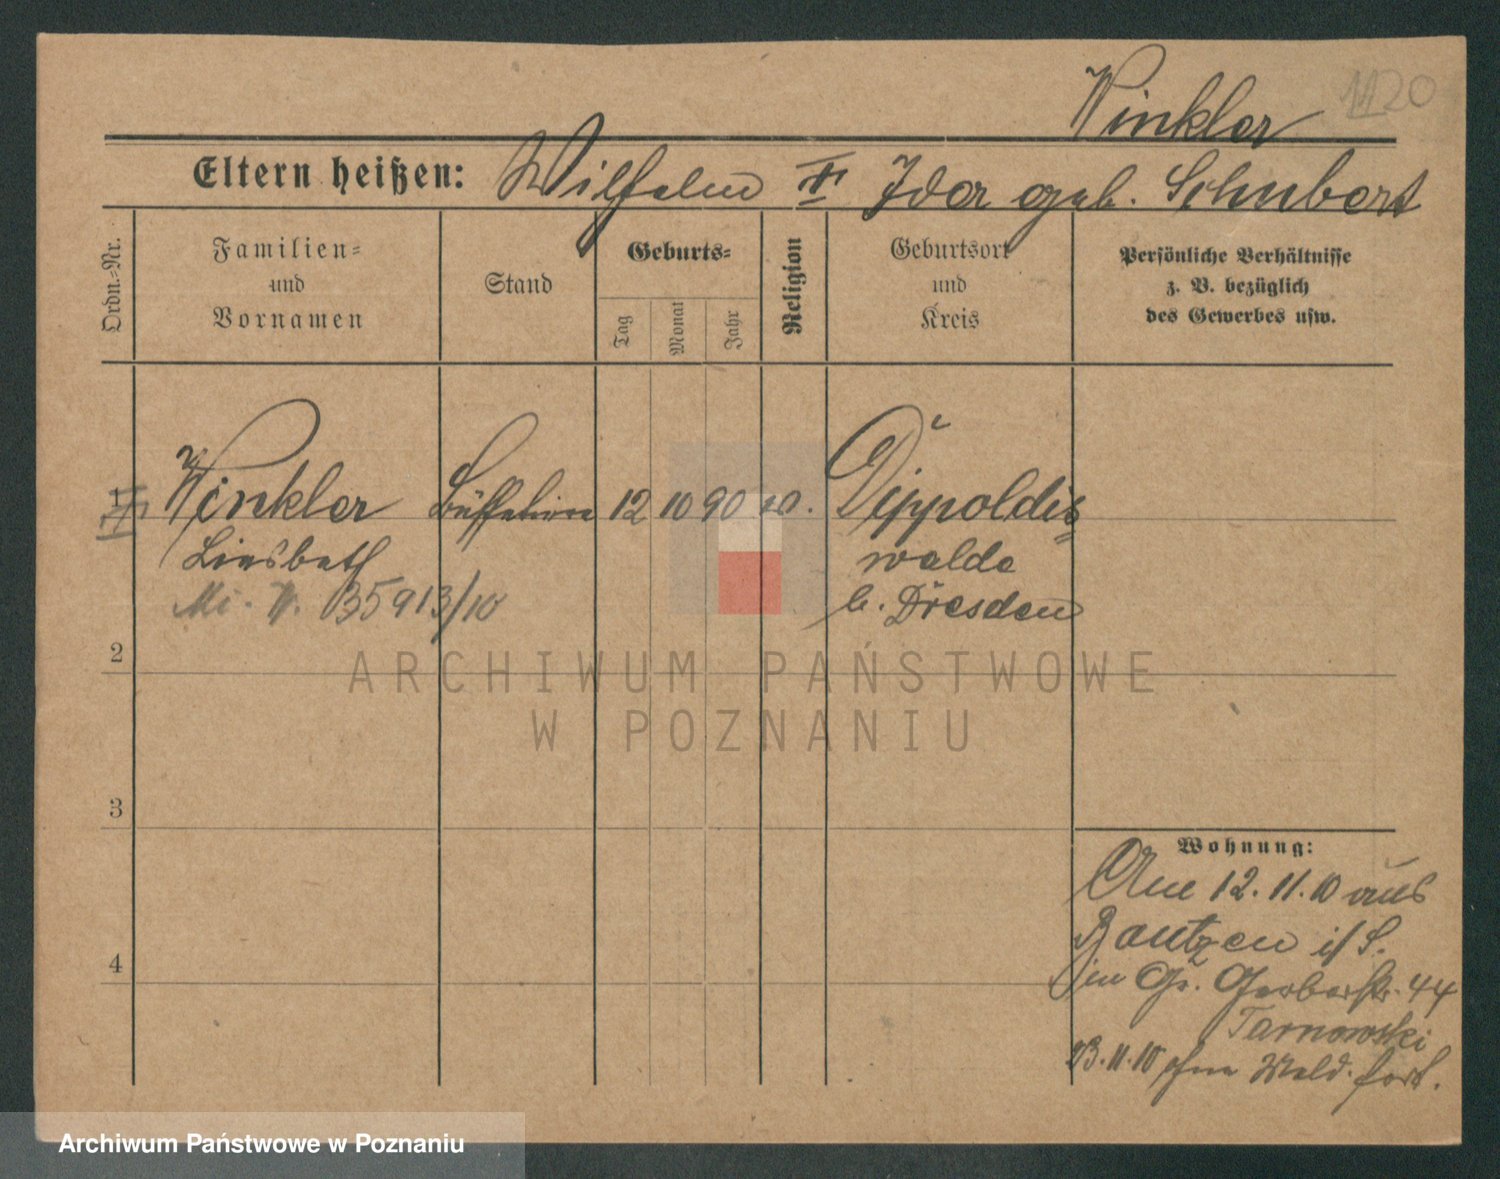 Winkler
1120
Eltern heißen: Wilhelm ✝ Ida geb. Schubert
Ordn.-Nr.
Familien-
und
Vornamen
Stand
Geburts-
Tag
Monat
Jahr
Religion
Geburtsort
und
Kreis
Persönliche Verhältnisse
z. B. bezüglich
des Gewerbes usw.
1
Winkler Büffetiere 12 10 90 Dippoldis
Liesbeth walde
35913/10 b. Dresden
2
ARCHIWUM PAŃSTWOWE
W POZNANIU
3
4
Wohnung:
Am 12.11.10 aus
Bautzen i/S.
in Gr. Gerberstr. 44
Tarnowski
23.11.10 ohne Meld. fort.
Archiwum Państwowe w Poznaniu